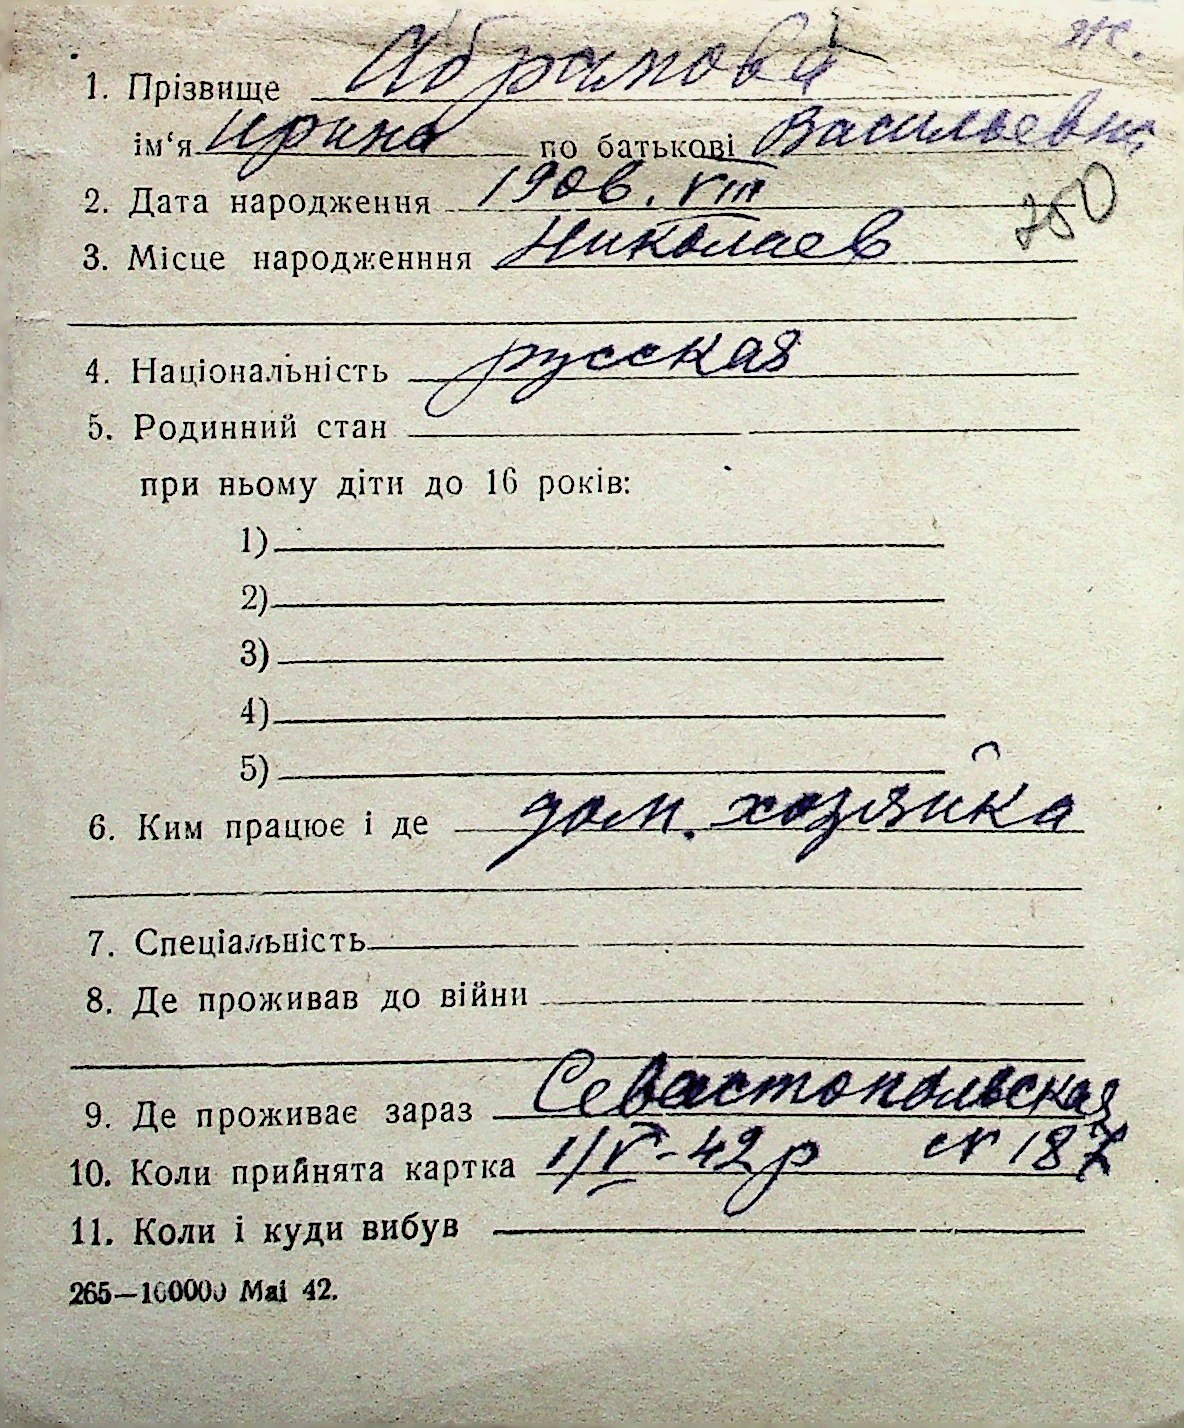 ж.
1. Прізвище Абрамова
ім‘я Ирина по батькові Васильевна
2. Дата народження 1906. VIII
750
3. Місце народженння Николаев
4. Національність русская
5. Родинний стан
при ньому діти до 16 років:
1)
2)
3)
4)
5)
6. Ким працює і де дом. хозяйка
7. Спеціальність
8. Де проживав до війни
9. Де проживає зараз Севастопольская
10. Коли прийнята картка 1/V-42р N 187
11. Коли і куди вибув
265—100000 Mai 42.